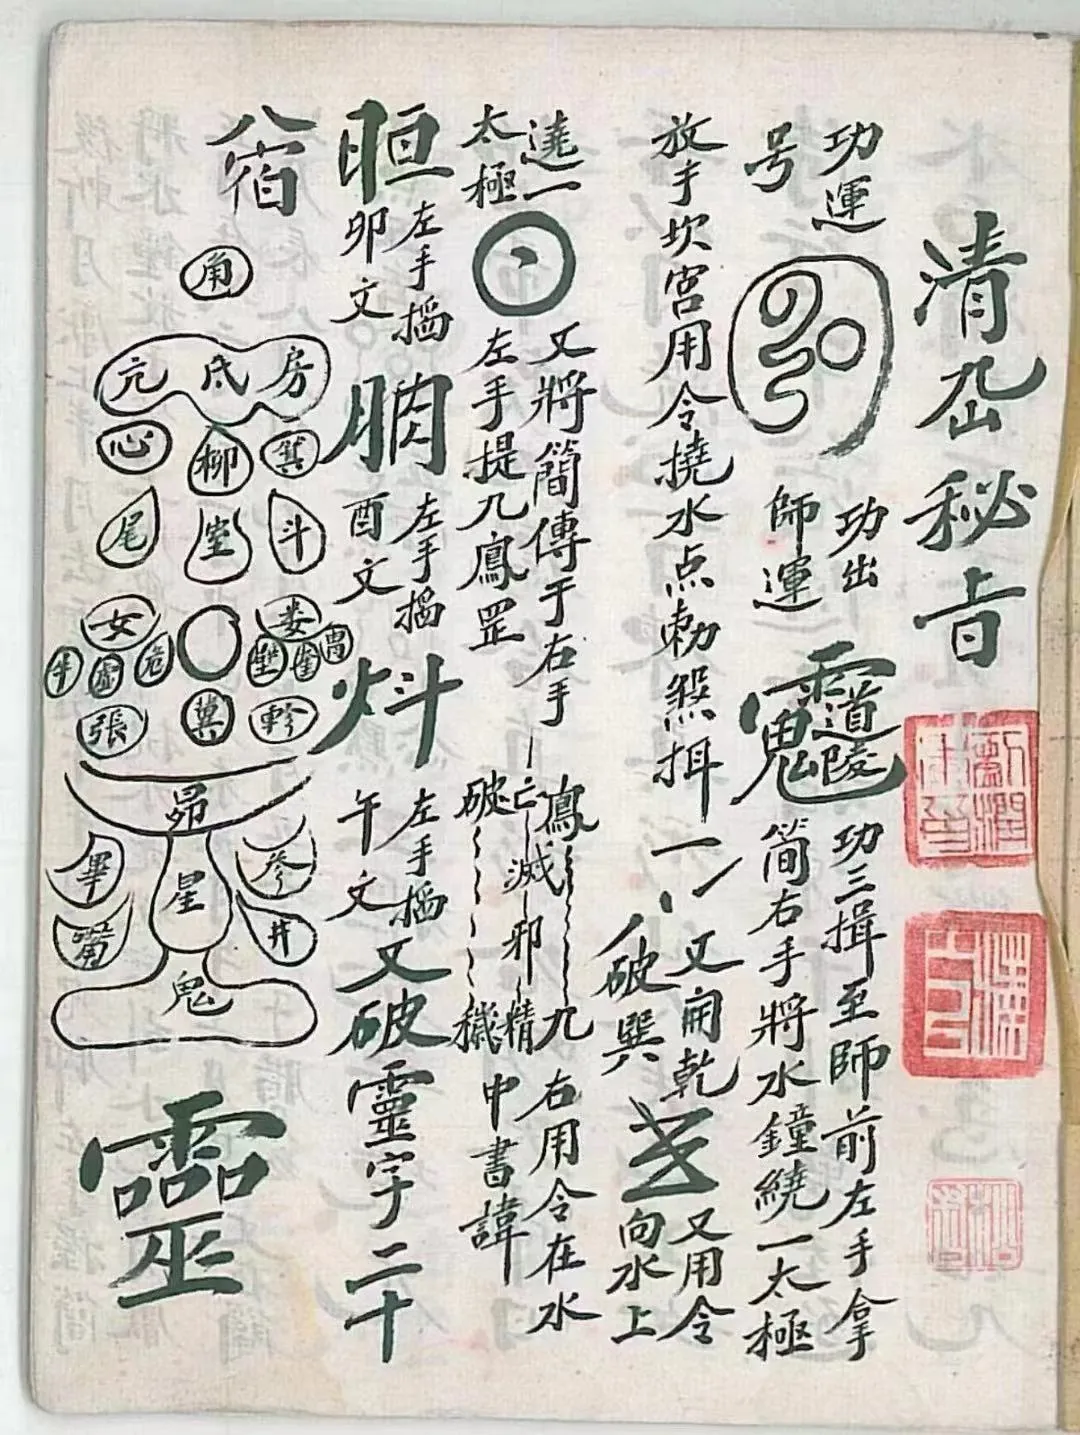 清㞮秘旨
功運
号
功出
師運
功三揖至師前左手拿
简右手將水鐘繞一太極
放手坎宮用令撓水点勅煞揖一
又開乾
破巽
又用令
向水上
遶一
太極
又將簡傳于右手
左手提九鳳罡
鳳
九
亡滅邪精
破穢
右用令在水
中書諱
左手搯
卯文
左手搯
酉文
左手搯
午文
又破靈字二十
八宿
角
亢 氐 房
心 柳 箕
尾 室 斗
女 娄
牛 虛 危 壁 奎 胃
張 翼 軫
昴
畢 星 參
觜 井
鬼
靈